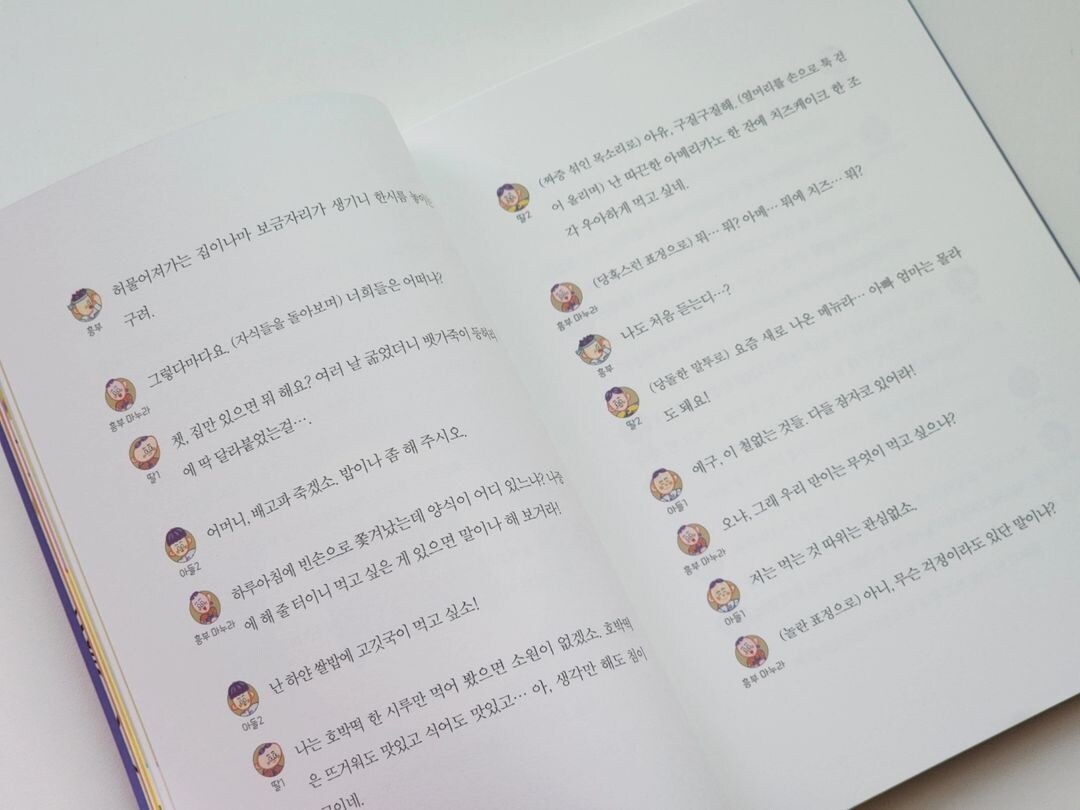 허물어져가는 집이나마 보금자리가 생기니 한시름
흥부
구려.
그렇다마다요. (자식들을 돌아보며) 너희들은 어떠냐?
흥부 마누라
쳇, 집만 있으면 뭐 해요? 여러 날 굶었더니 뱃가죽이
딸1
에 딱 달라붙었는걸….
어머니, 배고파 죽겠소. 밥이나 좀 해 주시오.
아들2
하루아침에 빈손으로 쫓겨났는데 양식이 어디 있느냐? 나중
흥부 마누라
에 해 줄 터이니 먹고 싶은 게 있으면 말이나 해 보거라!
난 하얀 쌀밥에 고깃국이 먹고 싶소!
아들2
나는 호박떡 한 시루만 먹어 봤으면 소원이 없겠소. 호박떡
딸1
은 뜨거워도 맛있고 식어도 맛있고… 아, 생각만 해도 침이
(짜증 섞인 목소리로) 아유, 구질구질해. (옆머리를 손으로 툭 걷
딸2
어 올리며) 난 따끈한 아메리카노 한 잔에 치즈케이크 한 조
각 우아하게 먹고 싶네.
(당혹스런 표정으로) 뭐… 뭐? 아메… 뭐에 치즈… 뭐?
흥부 마누라
나도 처음 듣는디…?
흥부
(당돌한 말투로) 요즘 새로 나온 메뉴라… 아빠 엄마는 몰라
딸2
도 돼요!
에구, 이 철없는 것들. 다들 잠자코 있어라!
아들1
오냐, 그래 우리 맏이는 무엇이 먹고 싶으냐?
흥부 마누라
저는 먹는 것 따위는 관심없소.
아들1
(놀란 표정으로) 아니, 무슨 걱정이라도 있단 말이냐?
흥부 마누라